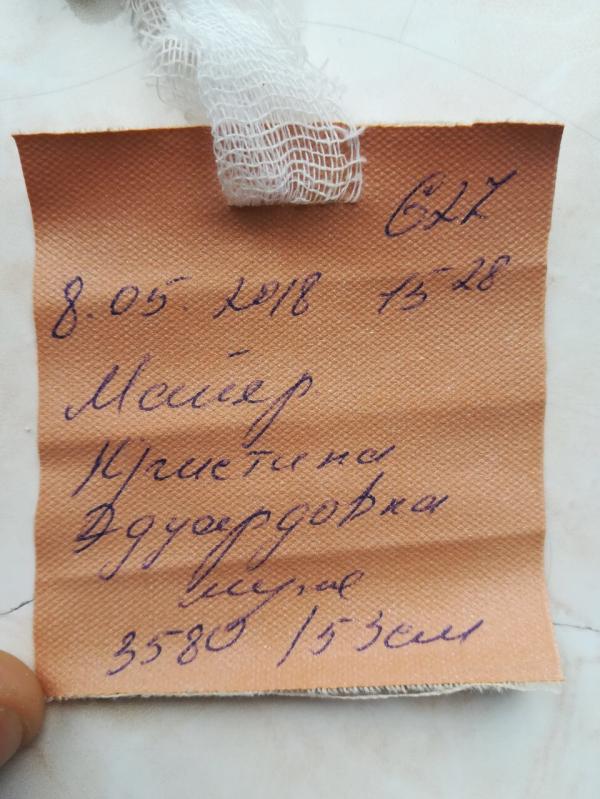 627
8.05.2018 15 28
Майер
Кристина
Эдуардовна
муж
3580 / 53см